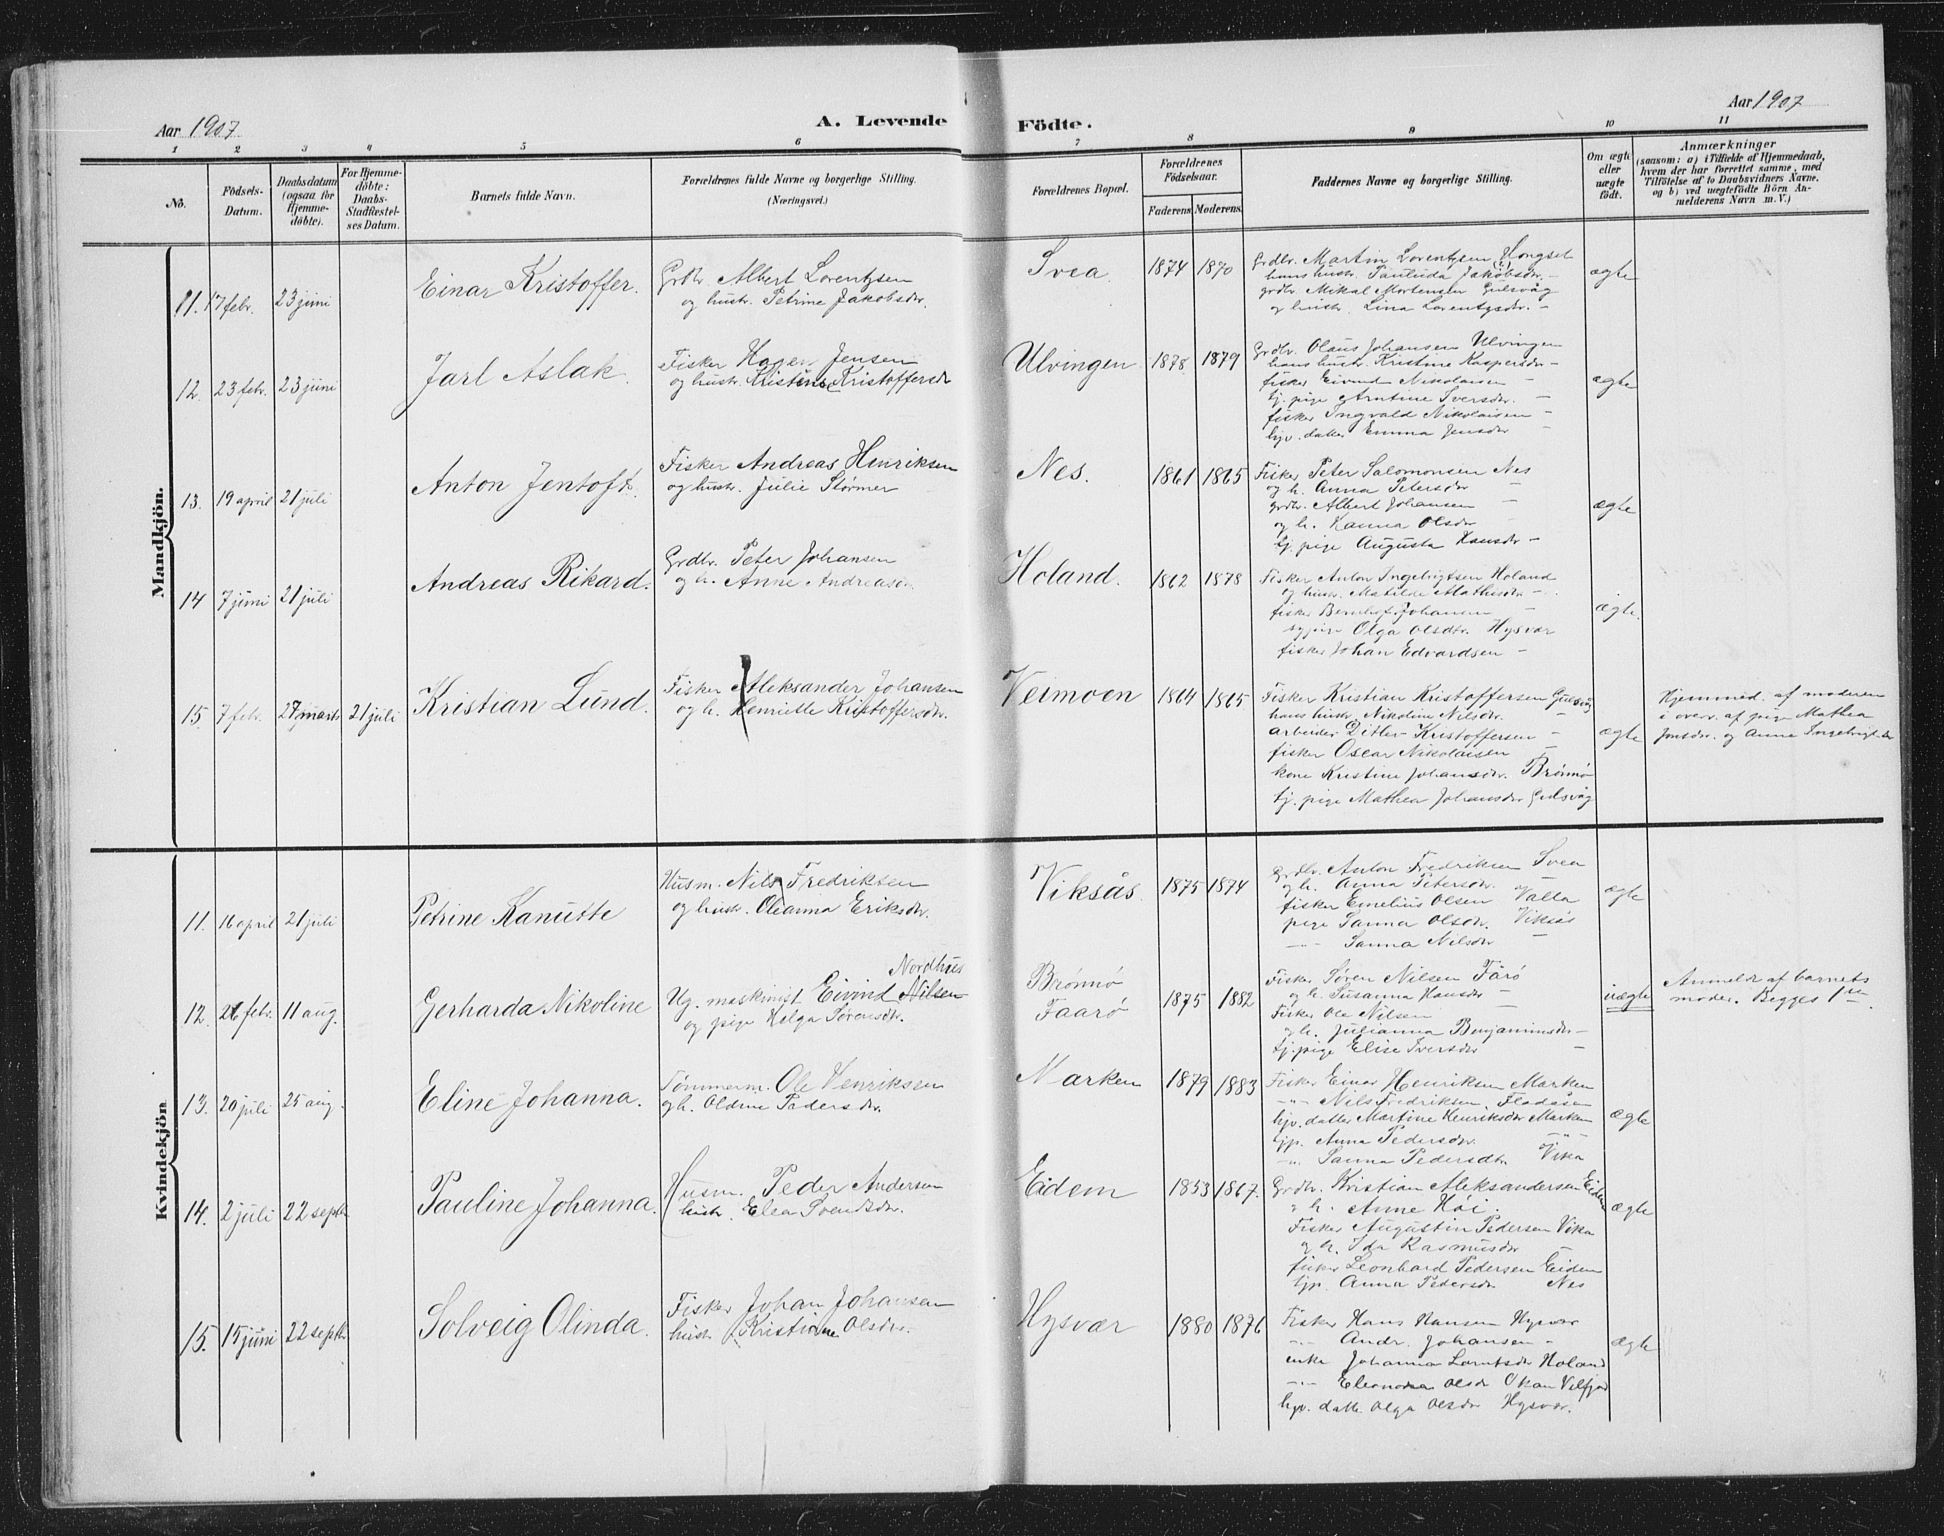 Aar 1907
A. Levende
Födte.
Aar 1907
1 2 3 4 5 6 7 8 9 10 11
No.
Födsels-
Datum.
Daabsdatum
(ogsaa for
Hjemme-
døbte).
For Hjemme-
døbte:
Daabs-
Stadfæstel-
ses Datum.
Barnets fulde Navn.
Forældrenes fulde Navne og borgerlige Stilling.
(Næringsvei.)
Forældrenes Bopæl.
Forældrenes
Födselsaar.
Faderens. Moderens.
Faddernes Navne og borgerlig Stilling.
Om ægte
eller
uægte
födt.
Anmærkninger
(saasom: a) i Tilfælde af Hjemmedaab,
hvem der har forrettet samme, med
Tilföielse af to Daabsvidners Navne.
og b) ved uægtefödte Börn An-
melderens Navn m. V.)
Mandkjön.
11. 17 febr. 23 juni
Einar Kristoffer.
Grdbr. Albert Lorentzsen
og hustr. Petrine Jakobsdr.
Svea
1874 1870
Grdbr. Martin Lorentzsen Hongset
hans hustr. Paulida Jakobsdr. -
grdbr. Mikal Mortensen Gulsvåg
og hustr. Lina Lorentzsdr. -
ægte
12. 23 febr. 23 juni
Jarl Aslak.
Fisker Hager Jensen
og hustr. Kristine Kristoffersdr
Ulvingen
1878 1879
Grdbr. Olaus Johansen Ulvingen
hans hustr. Kristine Kaspersdr -
fisker Eivind Nikolaisen -
tj. pige Arntine Iversdr. -
fisker Ingvald Nikolaisen -
hjv. datter Emma Jensdr -
ægte
13. 19 april 21 juli
Anton Jentoft.
Fisker Andreas Henriksen
og hustr. Julie Størmer
Nes.
1861 1865
Fisker Peter Salomonsen Nes
og h. Anna Petersdr -
grdbr. Albert Johansen -
og h. Hanna Olsdr -
tj. pige Augusta Hansdr -
ægte
14 7 juni 21 juli
Andreas Rikard.
Grdbr. Peter Johansen
og h. Anne Andreasdr.
Holand.
1862 1878
Fisker Anton Ingebrigtsen Holand
og hustr. Matilde Mathisdr -
fisker Bernhof Johansen -
Olga Olsdtr. Hysvær
fisker Johan Edvardsen -
ægte.
15. 7 febr. 27 marts 21 juli
Kristian Lund.
Fisker Aleksander Johansen
og h. Henriette Kristoffersdr.
Veimoen
1864 1865
Fisker Kristian Kristoffersen Gulsvåg
hans hustr. Nikoline Nilsdr. -
arbeider Ditlev Kristoffersen -
fisker Oscar Nikolaisen -
kone Kristine Johansdr. Brønnø
tj. pige Mathea Johansdr Gulsvåg
ægte
Hjemmed. af moderen
i overv. af pige Mathea
Jonsdr. og Anna Ingebrigtsdr
Kvindekjön
11. 16 april 21 juli
Petrine Kanutte
Husm. Nils Fredriksen
og hustr. Oleanna Eriksdr.
Viksås
1875 1874
Grdbr. Anton Fredriksen Svea
og h. Anna Petersdr.
fisker Emelius Olsen Valla
pige Sanna Olsdr. Viksås
-"- Sanna Nilsdr -
ægte
12. 26 febr. 11 aug.
Gerharda Nikoline
Nordhus
Ug. maskinist Eivind Nilsen
og pige Helga Sørensdr.
Brønnø
Faarø
1875 1882
Fisker Søren Nilsen Fårø
og h. Susanna Hansdr -
Fisker Ole Nilsen
og h. Julianna Benjaminsdr -
tj. pige Elise Iversdr -
uægte
Anmeldt af barnets
moder. Begges 1ste
13. 20 juli 25 aug.
Eline Johanna.
Tømmerm. Ole Henriksen
og h. Oldine Pedersdr.
Marken
1879 1883
Fisker Einar Henriksen Marken
-"- Nils Fredriksen. Fladåsen
hjv. datter Martine Henriksdr Marken
tjp. Anna Pedersdr. -"-
-"- Sanna Pedersdtr Vika
ægte
14. 2 juli 22 septbr
Pauline Johanna.
Husm. Peder Andersen
hustr. Elea Svendsdr.
Eidem
1853 1867.
Grdbr. Kristian Aleksandersen Eidem
og h. Anne Høi.
Fisker Augustin Pedersen Vika
og h. Ida Rasmusdr -
fisker Leonhard Pedersen Eidem
tjp. Anna Pedersdr Nes
ægte
15. 15 juni 22 septbr
Solveig Olinda.
Fisker Johan Johansen
hustr. Kristiane Olsdr.
Hysvær
1880 1876
Fisker Hans Hansen Hysvær
-"- Andr. Johansen -
enke Johanna Larntsdr Holand
-"- Eleonora Olsdr Okan Velfjord
hjv. datt. Olga Olsdr Hysvær.
ægte